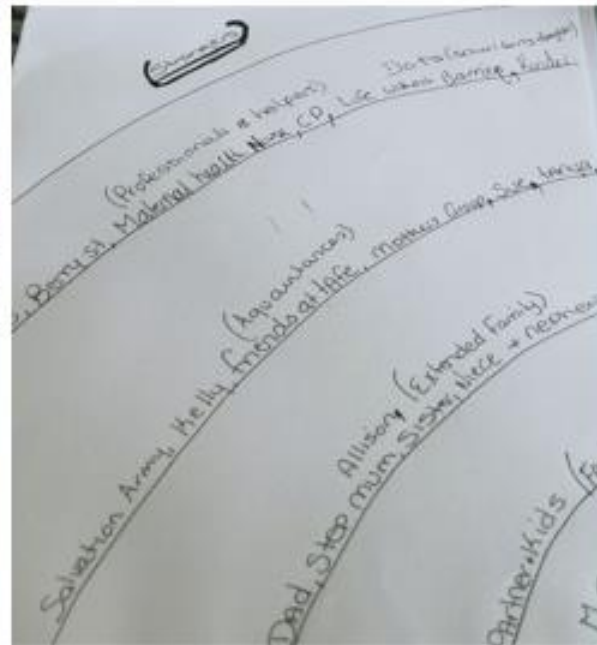 Strangers
(Professionals & helpers)
Barry St, Maternal health Nurse, CP, Life Without Barriers,
(Aquaintances)
Salvation Army, Kelly, friends at tafe, Mothers Group, Sue, tanya,
Allison, (Extended Family)
Dad, Step mum, Sister, Niece + nephew
Partner, Kids